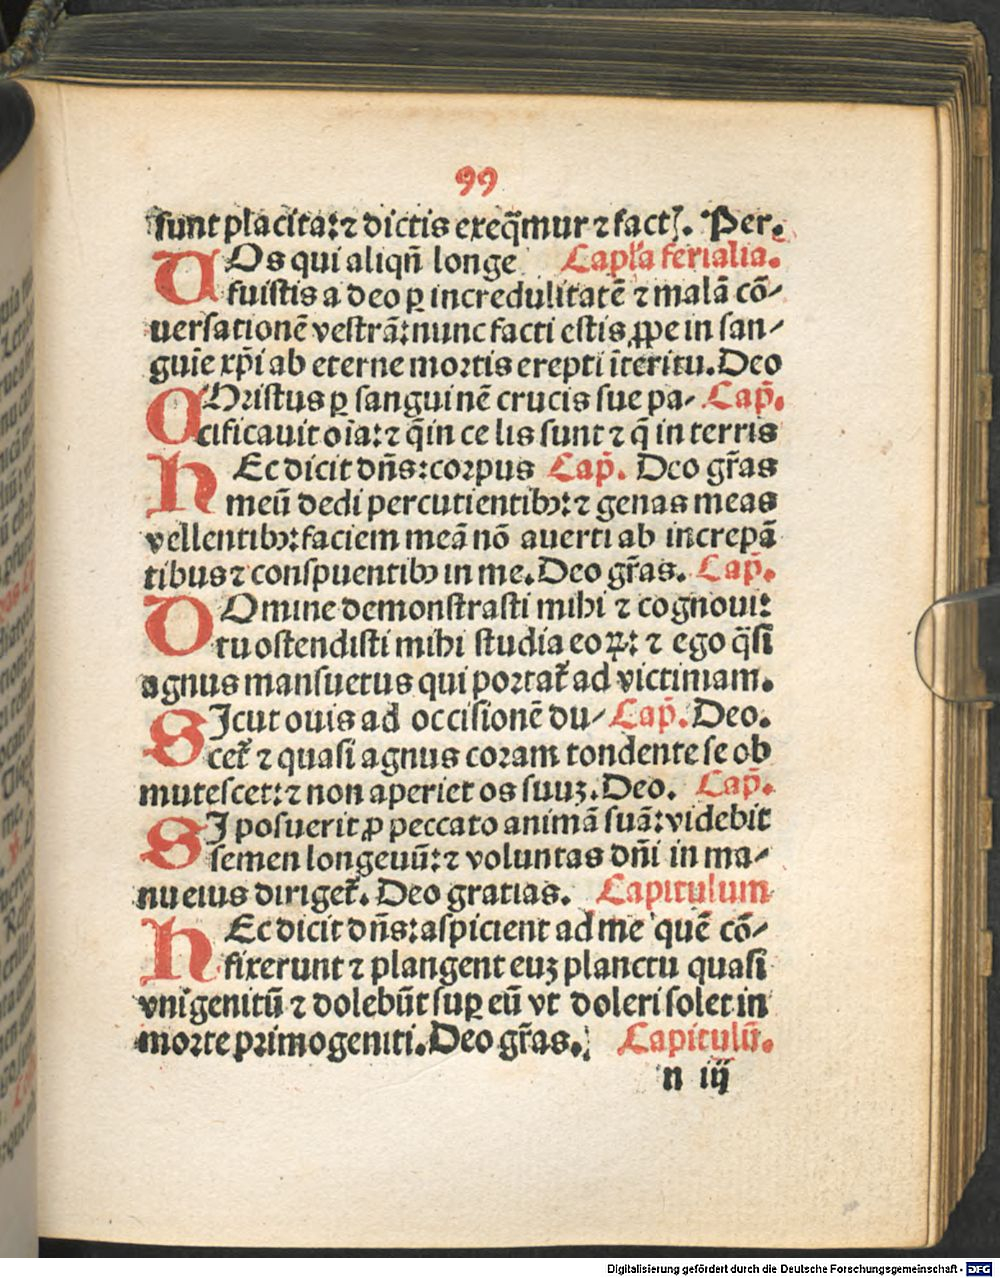 99
sunt placita: ⁊ dictis exeq̃mur ⁊ factꝭ. Per.
VOs qui aliqñ longe Capl'a ferialia.
fuistis a deo ꝑ incredulitatẽ ⁊ malã cõ-
uersationẽ vestrã: nunc facti estis ꝓpe in san-
guĩe xp̃i ab eterne mortis erepti ĩteritu. Deo
CHristus ꝑ sanguinẽ crucis sue pa- Cap̃.
cificauit oĩa: ⁊ q̃ in celis sunt ⁊ q̃ in terris
HEc dicit dñs: corpus Cap̃. Deo gr̃as
meũ dedi percutientibꝫ: ⁊ genas meas
vellentibꝫ: faciem meã nõ auerti ab increpã
tibus ⁊ conspuentibꝫ in me. Deo gr̃as. Cap̃.
DOmine demonstrasti mihi ⁊ cognoui:
tu ostendisti mihi studia eoꝝ: ⁊ ego q̃si
agnus mansuetus qui portat̃ ad victimam.
SIcut ouis ad occisionẽ du- Cap̃. Deo.
cet̃ ⁊ quasi agnus coram tondente se ob
mutescet: ⁊ non aperiet os suuꝫ. Deo. Cap̃.
SI posuerit ꝓ peccato animã suã: videbit
semen longeuũ: ⁊ voluntas dñi in ma-
nu eius diriget̃. Deo gratias. Capitulum
HEc dicit dñs: aspicient ad me quẽ cõ-
fixerunt ⁊ plangent euꝫ planctu quasi
vnigenitũ ⁊ dolebũt suꝑ eũ vt doleri solet in
morte primogeniti. Deo gr̃as. Capitulũ.
n iij
Digitalisierung gefördert durch die Deutsche Forschungsgemeinschaft - DFG